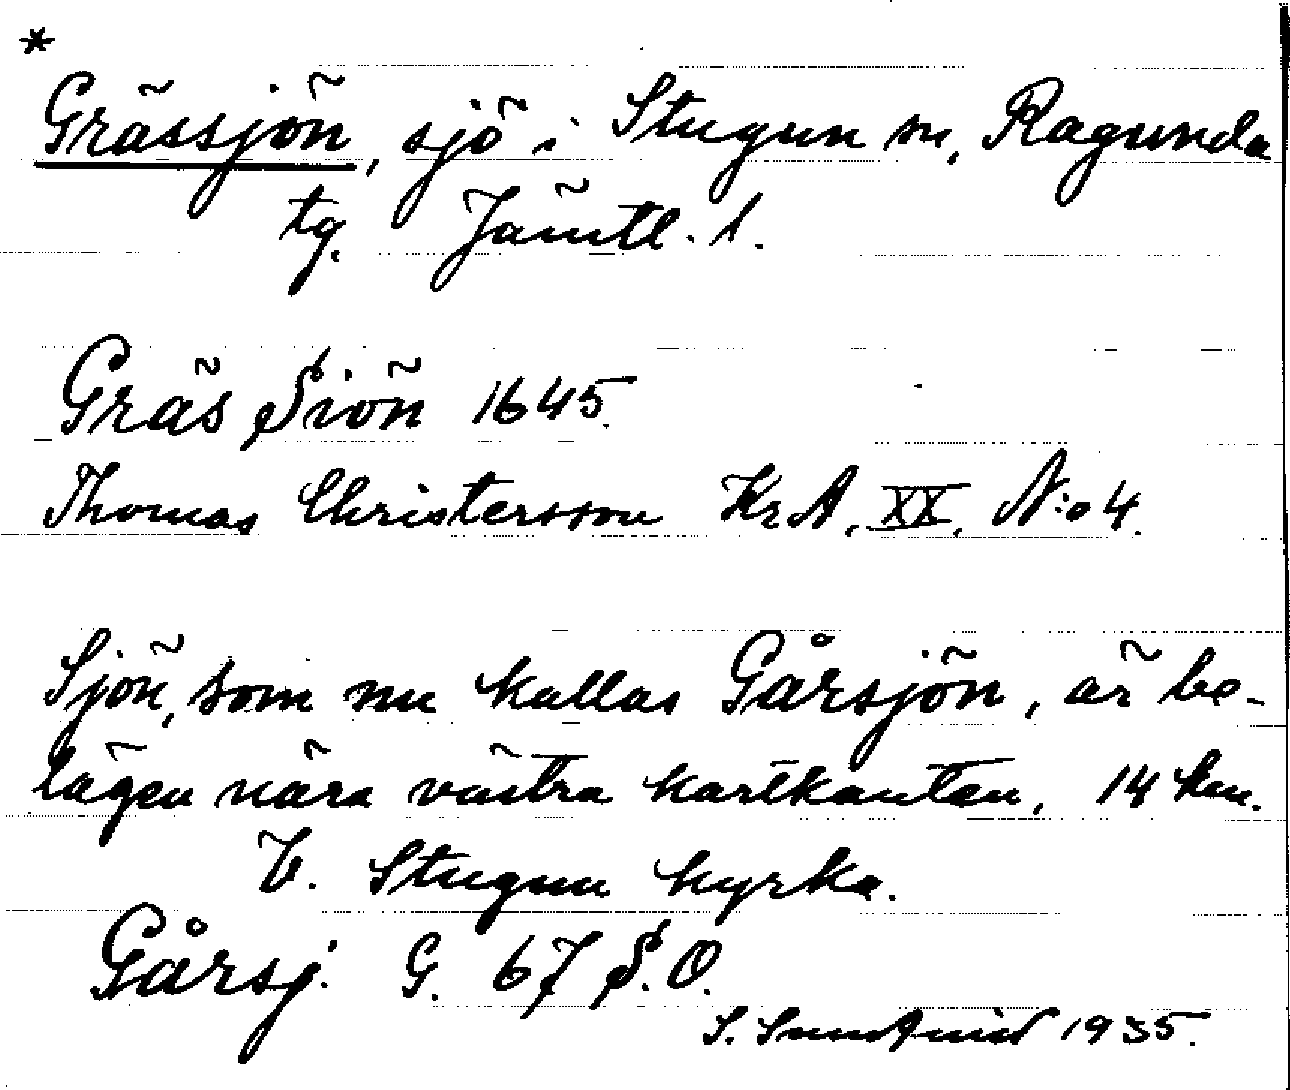 *
Grässjön, sjö i Stugun sn, Ragunda
tg. Jämtl. l.
Gräs Siön 1645.
Thomas Christersson KrA. XX. N:o 4.
Sjön, som nu kallas Gårsjön, är be-
lägen nära västra kartkanten, 14 km.
V. Stugun kyrka.
Gårsj. G. 67 S.O.
S. Sundqvist 1935.